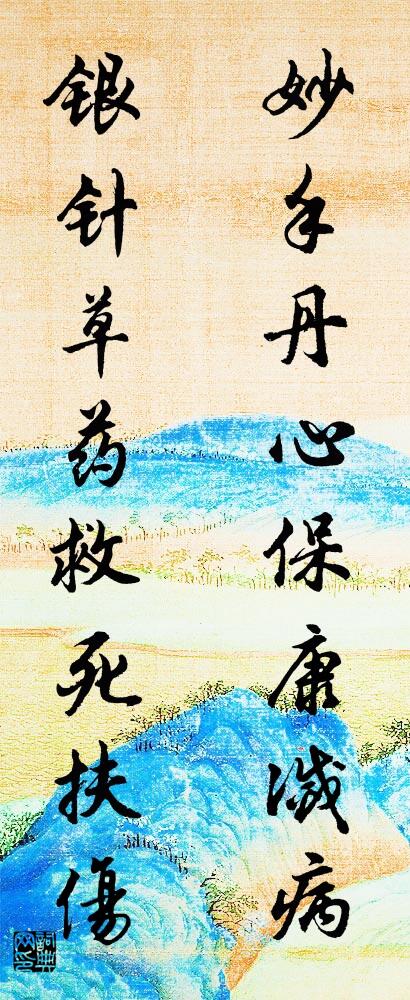 妙手丹心保康減病
銀针草药救死扶傷